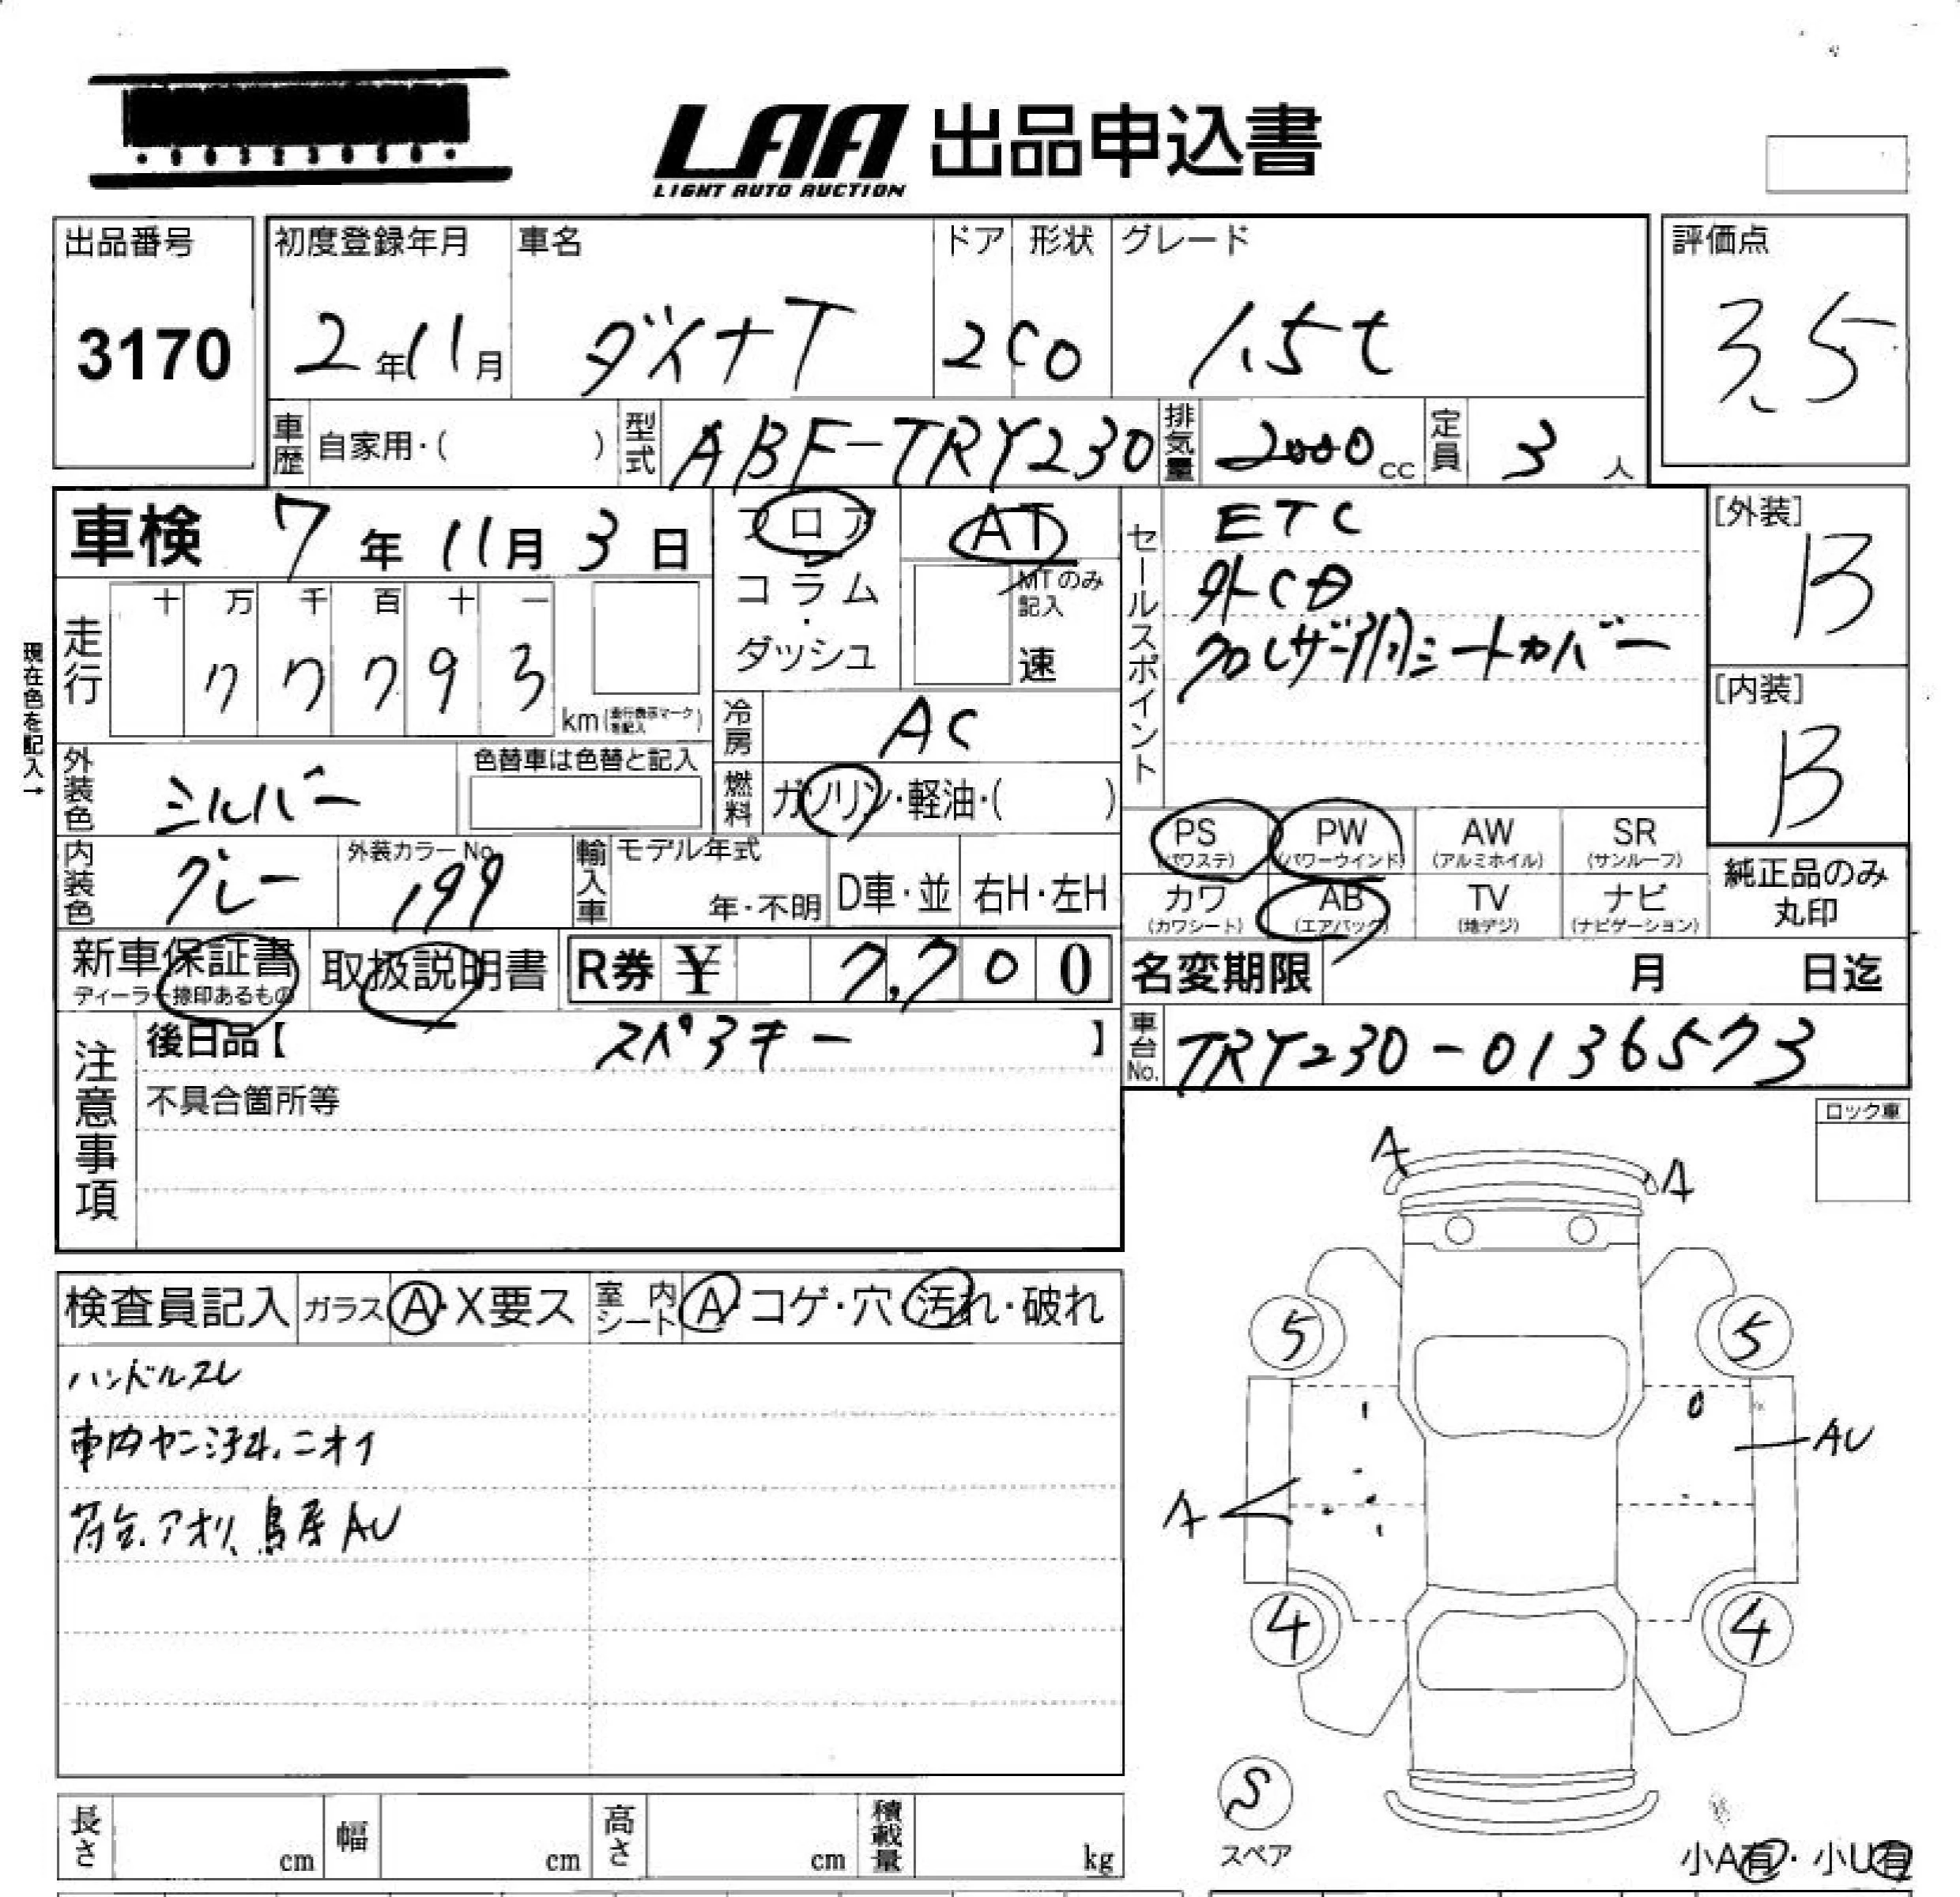 LAA 出品申込書
LIGHT AUTO AUCTION
出品番号
3170
初度登録年月
2年11月
車名
ダイナT
ドア
2
形状
CO
グレード
1.5t
評価点
3.5
車歴
自家用・( )
型式
ABF-TRY230
排気量
2000cc
定員
3人
車検 7年11月3日
フロア
コラム
・
ダッシュ
AT
MTのみ記入
速
セールスポイント
ETC
外CD
クロレザー調シートカバー
[外装]
B
[内装]
B
現在色を記入→
走行
十 万 千 百 十 一
7 7 7 9 3
km(走行表示マークを記入)
冷房
AC
外装色
シルバー
色替車は色替と記入
燃料
ガソリン・軽油・( )
内装色
グレー
外装カラーNo.
199
輸入車
モデル年式
年・不明
D車・並
右H・左H
PS
(パワステ)
PW
(パワーウインド)
AW
(アルミホイル)
SR
(サンルーフ)
カワ
(カワシート)
AB
(エアバック)
TV
(地デジ)
ナビ
(ナビゲーション)
純正品のみ
丸印
新車保証書
ディーラー捺印あるもの
取扱説明書
R券 ¥ 7,700
名変期限 月 日迄
注意事項
後日品【 スペアキー 】
不具合箇所等
車台No.
TRY230-0136573
ロック車
検査員記入
ガラス A・X要ス
室内シート A・コゲ・穴・汚れ・破れ
ハンドルスレ
車内ヤニ汚れ、ニオイ
荷台、アオリ、鳥居AU
A
A
5
5
AU
A
4
4
S
スペア
小A有・小U有
長さ cm
幅 cm
高さ cm
積載量 kg